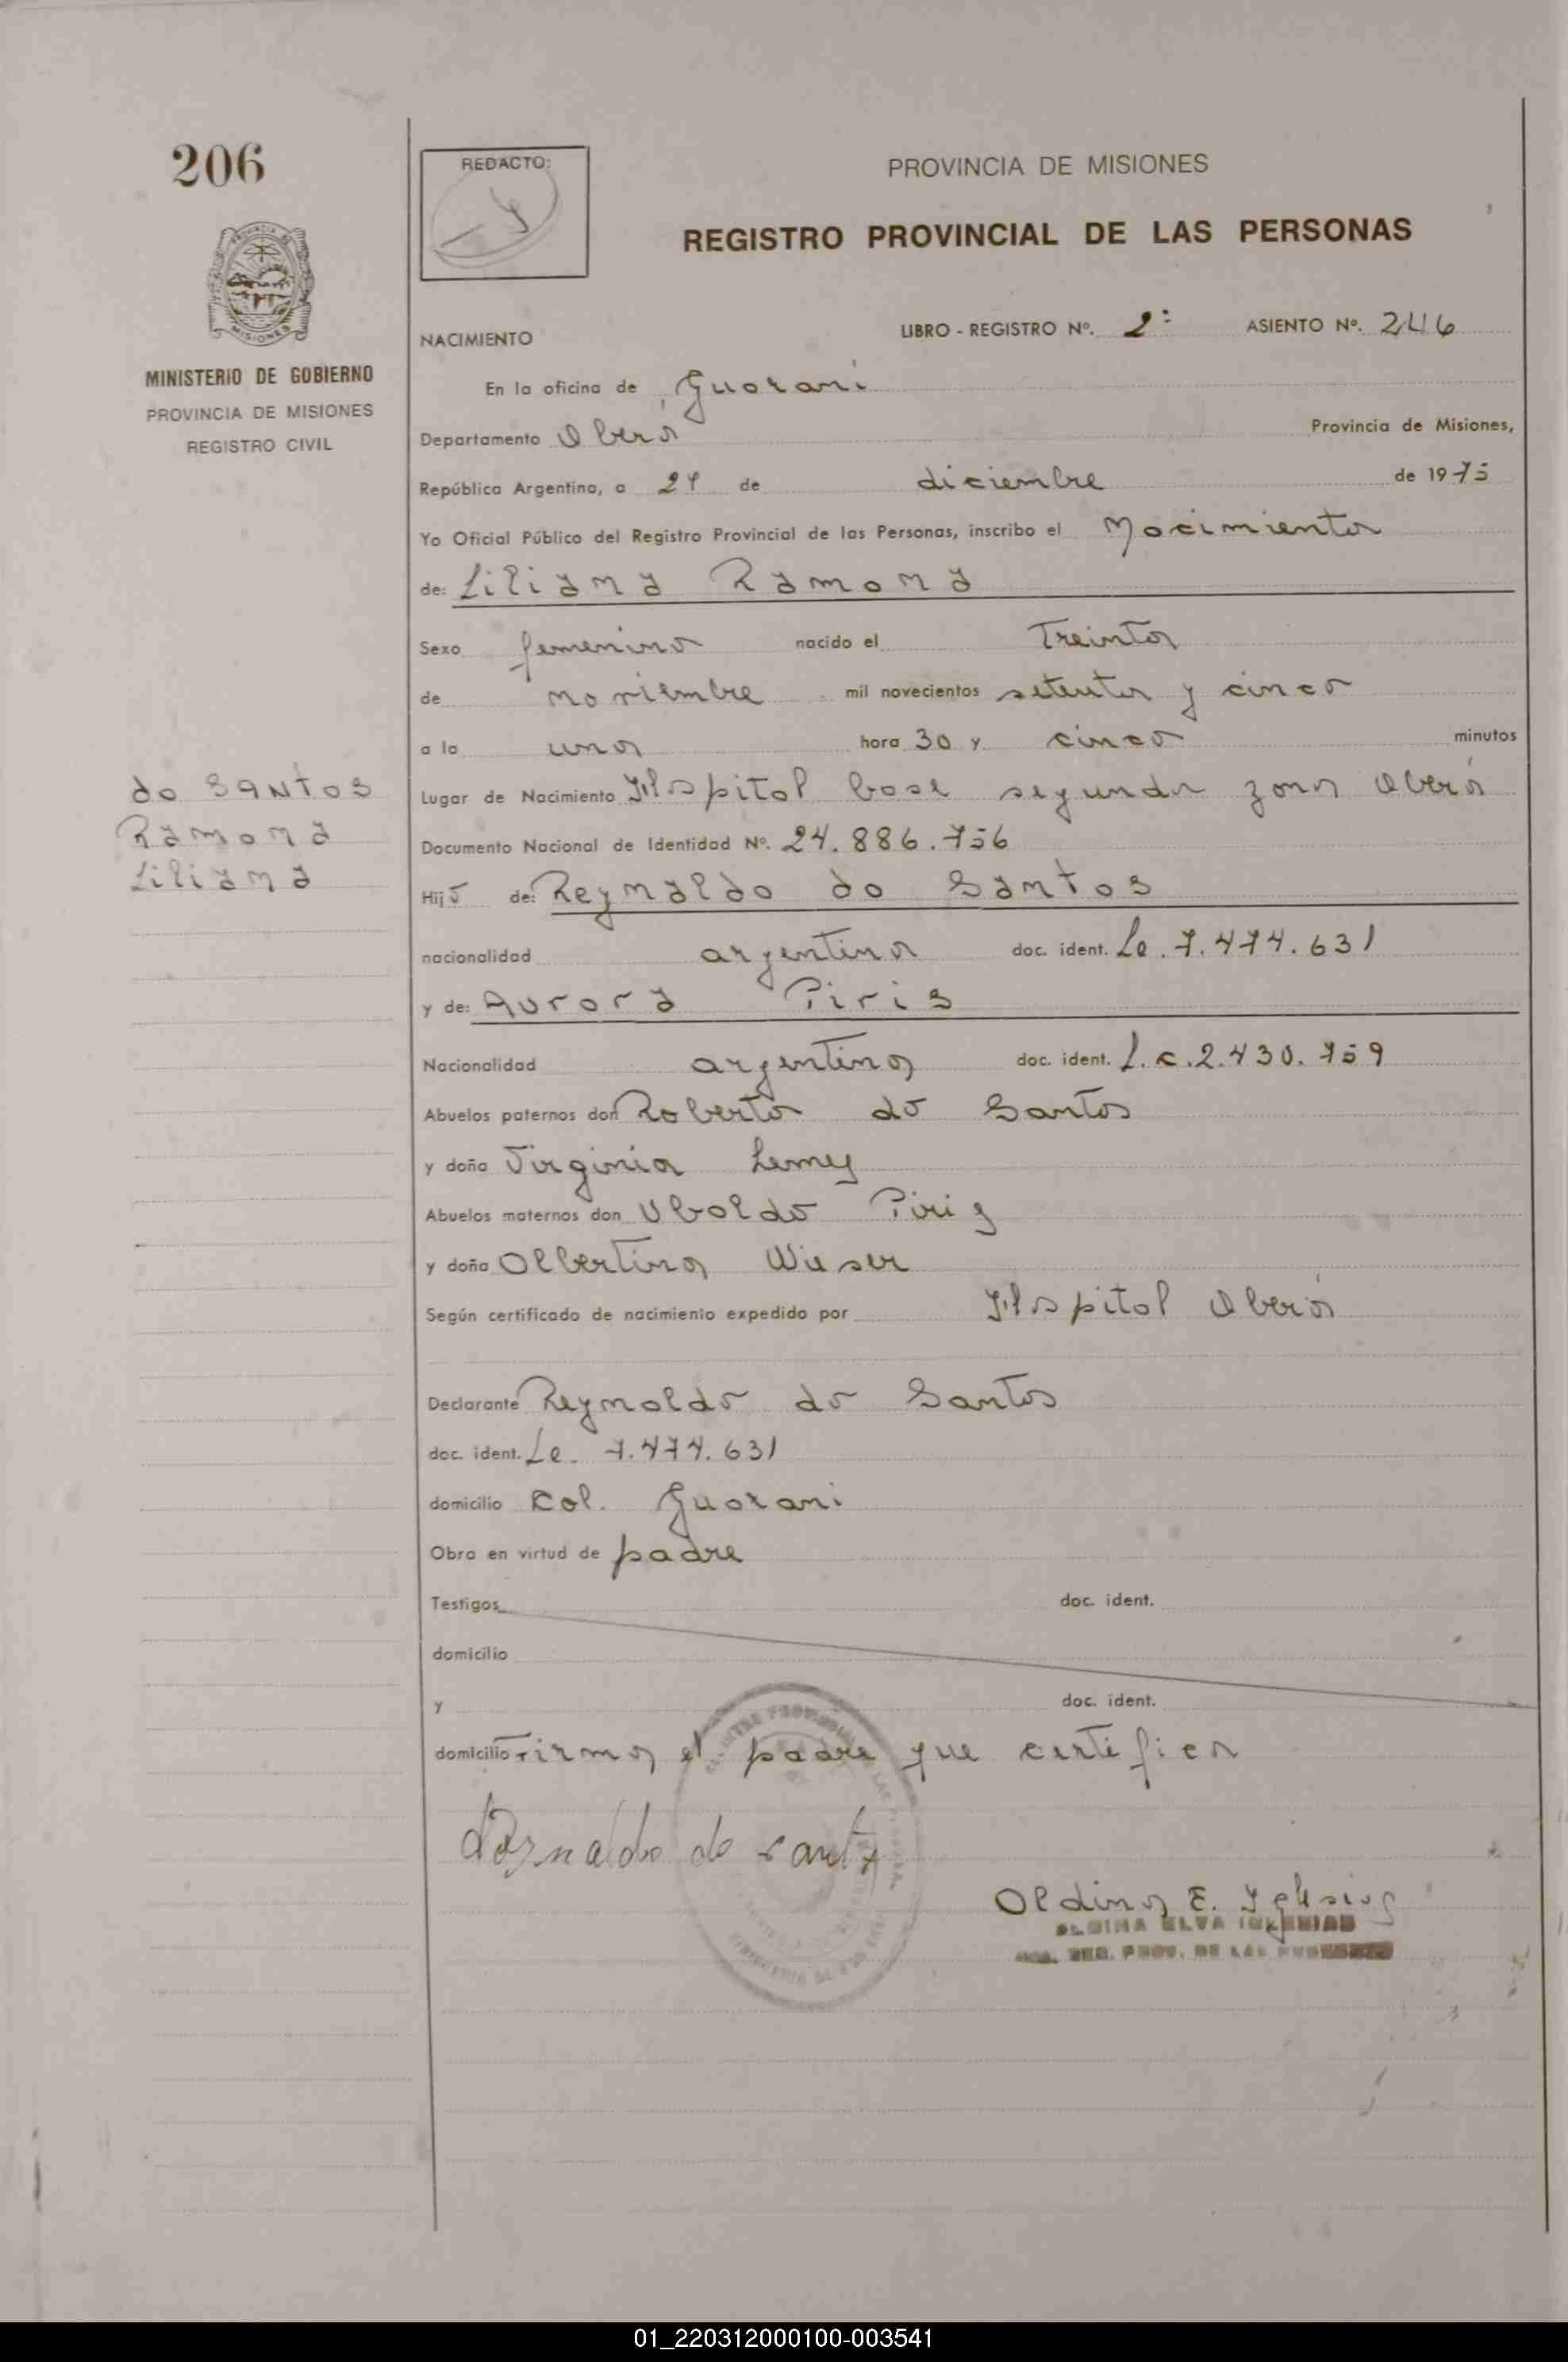 206
REDACTO:
PROVINCIA DE MISIONES
REGISTRO PROVINCIAL DE LAS PERSONAS
MISIONES
MINISTERIO DE GOBIERNO
PROVINCIA DE MISIONES
REGISTRO CIVIL
NACIMIENTO LIBRO - REGISTRO Nº. 2º ASIENTO Nº. 246
En la oficina de Guarani
Departamento Oberá Provincia de Misiones,
República Argentina, a de diciembre de 1975
Yo Oficial Público del Registro Provincial de las Personas, inscribo el Nacimiento
de: Liliana Ramona
Sexo femenino nacido el Treinta
de noviembre mil novecientos setenta y cinco
a la una hora 30 y cinco minutos
do SANTOS
Ramona
Liliana
Lugar de Nacimiento Hospital base segunda zona Oberá
Documento Nacional de Identidad Nº. 24.886.756
Hija de: Reynaldo do Santos
nacionalidad argentina doc. ident. Le. 7.474.631
y de: Aurora Piris
Nacionalidad argentina doc. ident. L.c.2.430.759
Abuelos paternos don Roberto do Santos
y doña Virginia Lemes
Abuelos maternos don Ubaldo Piris
y doña Albertina
Según certificado de nacimiento expedido por Hospital Oberá
Declarante Reynaldo do Santos
doc. ident. Le. 7.474.631
domicilio Col. Guarani
Obra en virtud de padre
Testigos doc. ident.
domicilio
y doc. ident.
domicilio Firma el padre que certifica
Reynaldo do santos
Aldina E. Iglesias
ALDINA ELVA IGLESIAS
REG. PROV. DE LAS PERSONAS
01_220312000100-003541